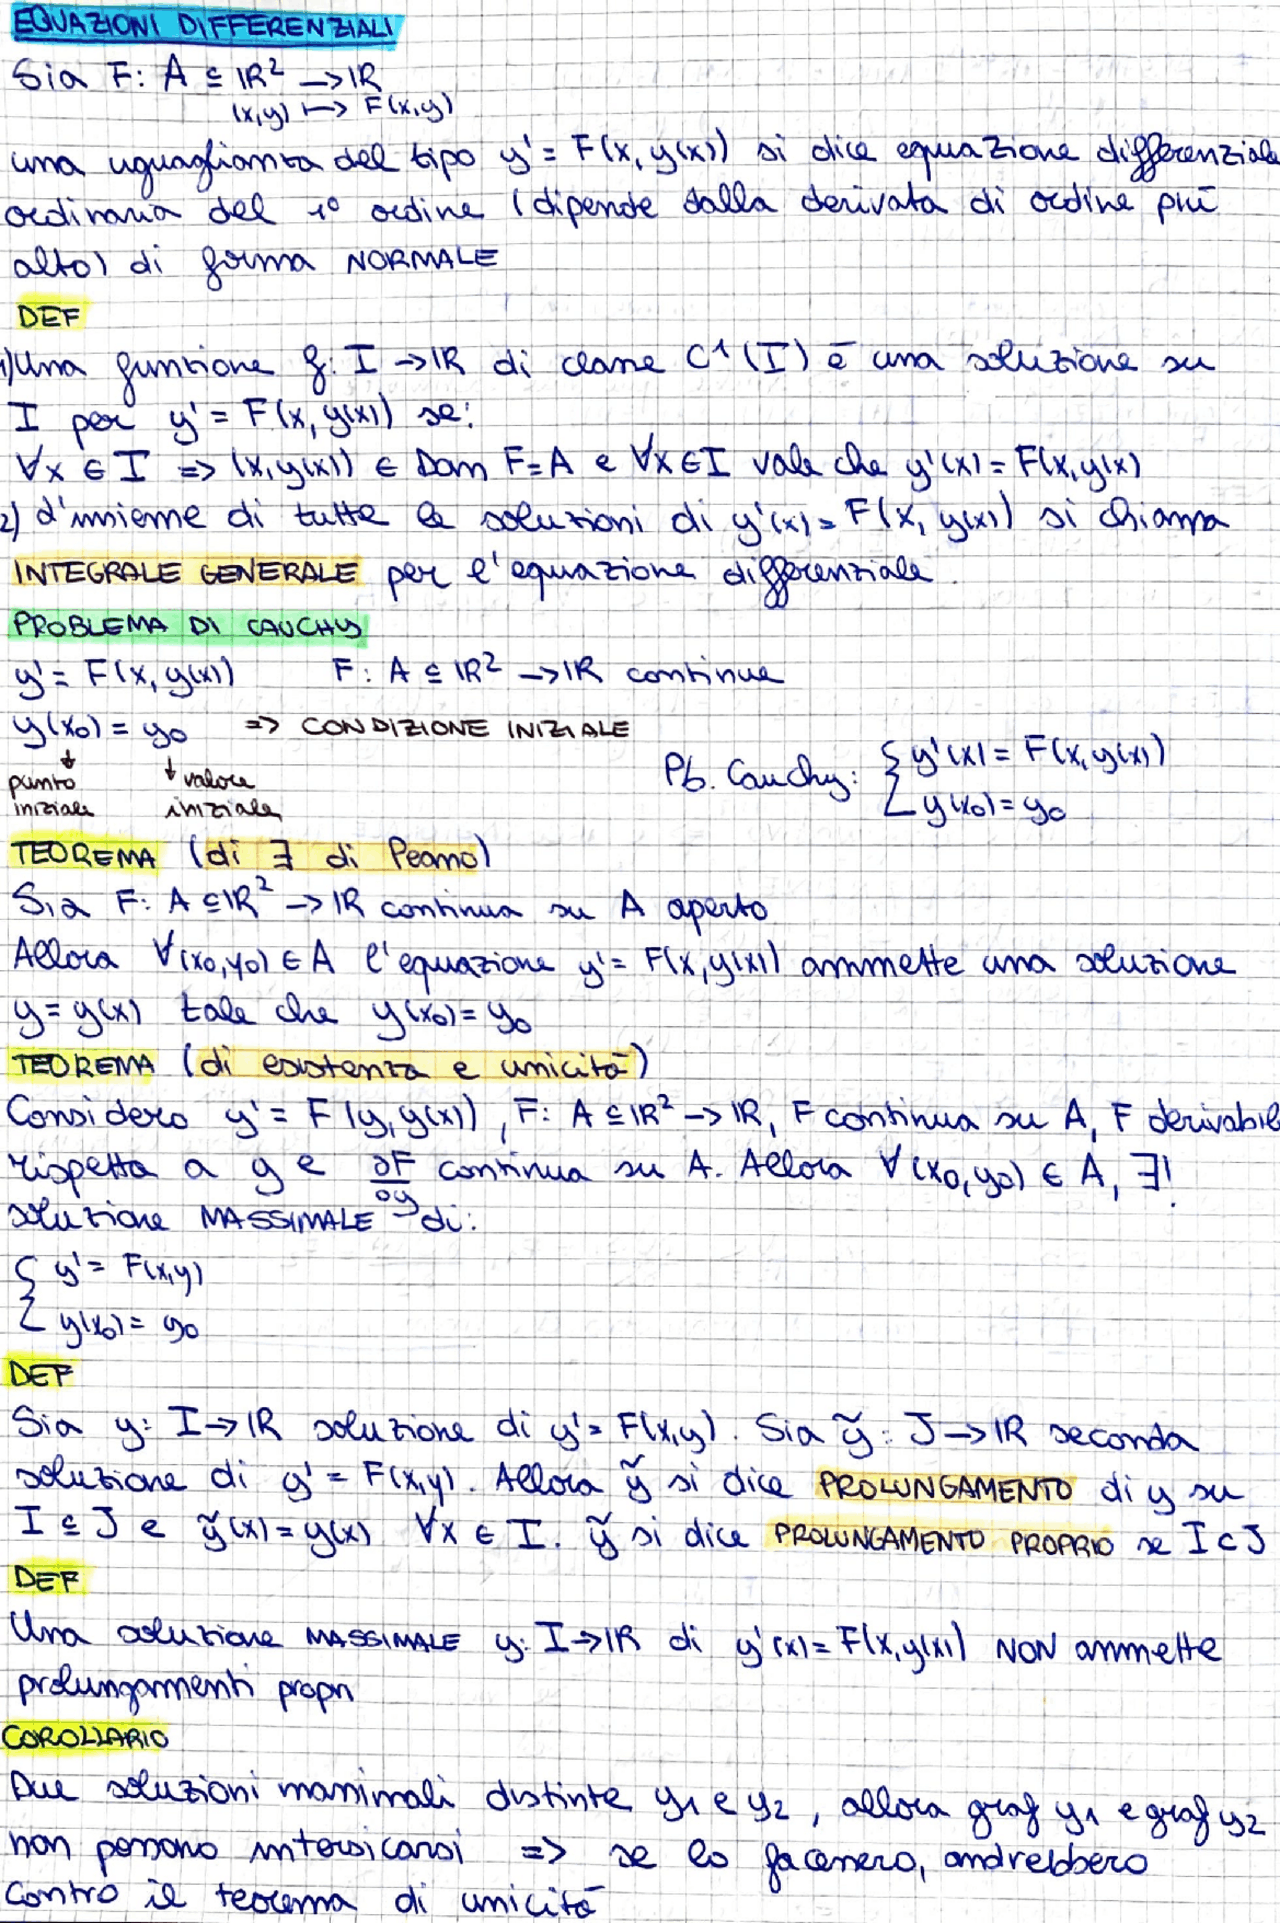 EQUAZIONI DIFFERENZIALI
Sia F: A ⊆ ℝ² → ℝ
(x,y) ↦ F(x,y)
una uguaglianza del tipo y' = F(x, y(x)) si dice equazione differenziale
ordinaria del 1° ordine (dipende dalla derivata di ordine più
alto) di forma NORMALE
DEF
1) Una funzione f: I → ℝ di classe C¹(I) è una soluzione su
I per y' = F(x, y(x)) se:
∀x ∈ I => (x,y(x)) ∈ Dom F = A e ∀x ∈ I vale che y'(x) = F(x,y(x)
2) L'insieme di tutte le soluzioni di y'(x) = F(x, y(x)) si chiama
INTEGRALE GENERALE per l'equazione differenziale.
PROBLEMA DI CAUCHY
y' = F(x, y(x)) F: A ⊆ ℝ² → ℝ continue
y(x₀) = y₀ => CONDIZIONE INIZIALE
↓ punto iniziale ↓ valore iniziale
Pb. Cauchy: { y'(x) = F(x,y(x))
y(x₀) = y₀
TEOREMA (di ∃ di Peano)
Sia F: A ⊆ ℝ² → ℝ continua su A aperto
Allora ∀(x₀,y₀) ∈ A l'equazione y' = F(x,y(x)) ammette una soluzione
y = y(x) tale che y(x₀) = y₀
TEOREMA (di esistenza e unicità)
Considero y' = F(y, y(x)), F: A ⊆ ℝ² → ℝ, F continua su A, F derivabile
rispetto a y e ∂F/∂y continua su A. Allora ∀(x₀,y₀) ∈ A, ∃!
soluzione MASSIMALE di:
{ y' = F(x,y)
y(x₀) = y₀
DEF
Sia y: I → ℝ soluzione di y' = F(x,y). Sia ỹ: J → ℝ seconda
soluzione di y' = F(x,y). Allora ỹ si dice PROLUNGAMENTO di y su
I ⊆ J e ỹ(x) = y(x) ∀x ∈ I. ỹ si dice PROLUNGAMENTO PROPRIO se I ⊂ J
DEF
Una soluzione MASSIMALE y: I → ℝ di y'(x) = F(x,y(x)) NON ammette
prolungamenti propri
COROLLARIO
Due soluzioni massimali distinte y₁ e y₂, allora graf y₁ e graf y₂
non possono intersicarsi => se lo facessero, andrebbero
contro il teorema di unicità